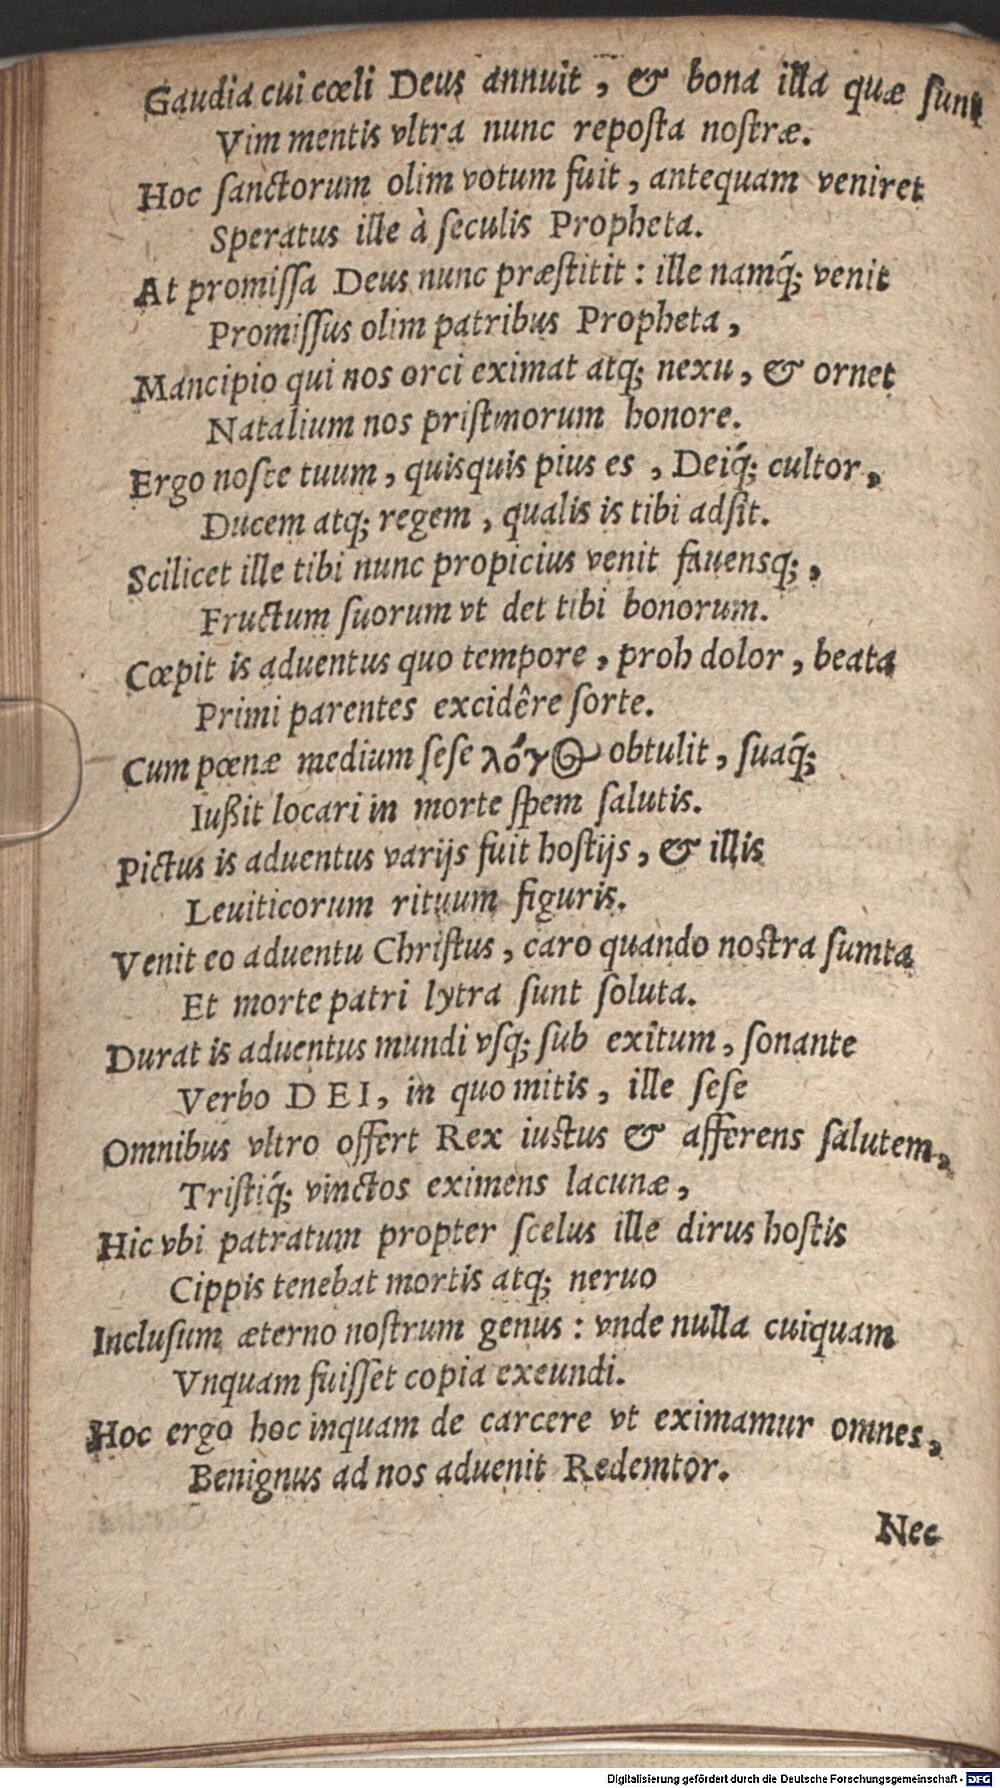 Gaudia cui cœli Deus annuit, & bona illa quæ ſunt
Vim mentis vltra nunc reposta nostræ.
Hoc ſanctorum olim votum fuit, antequam veniret
Speratus ille à ſeculis Propheta.
At promiſſa Deus nunc præſtitit: ille namq́; venit
Promiſſus olim patribus Propheta,
Mancipio qui nos orci eximat atq; nexu, & ornet
Natalium nos priſtinorum honore.
Ergo noſce tuum, quisquis pius es, Deiq́; cultor,
Ducem atq; regem, qualis is tibi adſit.
Scilicet ille tibi nunc propicius venit fauensq;,
Fructum ſuorum vt det tibi bonorum.
Cœpit is aduentus quo tempore, proh dolor, beata
Primi parentes excidêre ſorte.
Cum pœnæ medium ſeſe λόγος obtulit, ſuaq́;
Iußit locari in morte ſpem ſalutis.
Pictus is aduentus varijs fuit hoſtijs, & illis
Leuiticorum rituum figuris.
Venit eo aduentu Chriſtus, caro quando noſtra ſumta
Et morte patri lytra ſunt ſoluta.
Durat is aduentus mundi vſq; ſub exitum, ſonante
Verbo DEI, in quo mitis, ille ſeſe
Omnibus vltro offert Rex iuſtus & afferens ſalutem,
Triſtiq́; vinctos eximens lacunæ,
Hic vbi patratum propter ſcelus ille dirus hoſtis
Cippis tenebat mortis atq; neruo
Incluſum æterno noſtrum genus: vnde nulla cuiquam
Vnquam fuiſſet copia exeundi.
Hoc ergo hoc inquam de carcere vt eximamur omnes,
Benignus ad nos aduenit Redemtor.
Nec
Digitalisierung gefördert durch die Deutsche Forschungsgemeinschaft - DFG